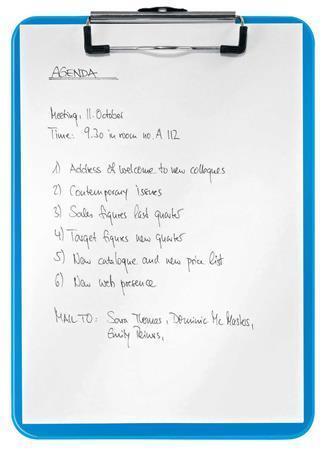 AGENDA
Meeting: 11. October
Time: 9.30 in room no. A 112
1) Address of welcome to new colleques
2) Contemporary issues
3) Sales figures last quarter
4) Target figures new quarter
5) New catalogue and new price list
6) New web presence
MAIL TO: Sara Thomas, Dominic Mc Masters,
Emily